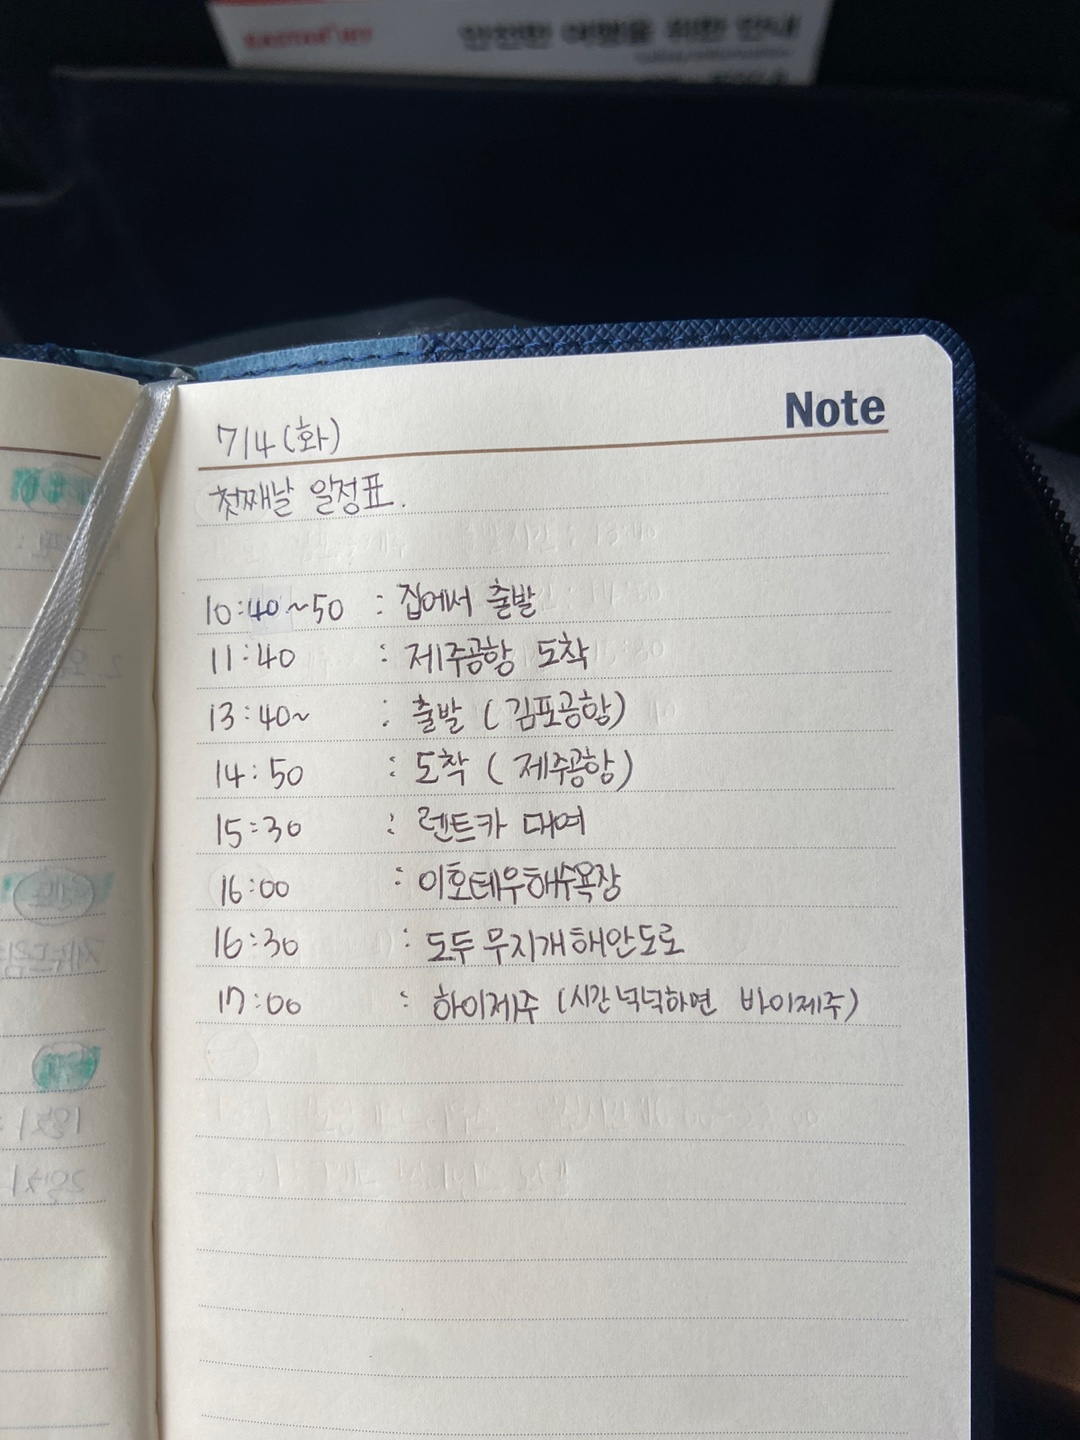 EASTAR JET 안전한 여행을 위한 안내
Note
7/4(화)
첫째날 일정표.
10:40~50 : 집에서 출발
11:40 : 제주공항 도착
13:40~ : 출발 (김포공항)
14:50 : 도착 (제주공항)
15:30 : 렌트카 대여
16:00 : 이호테우해수욕장
16:30 : 도두 무지개해안도로
17:00 : 하이제주 (시간넉넉하면 바이제주)